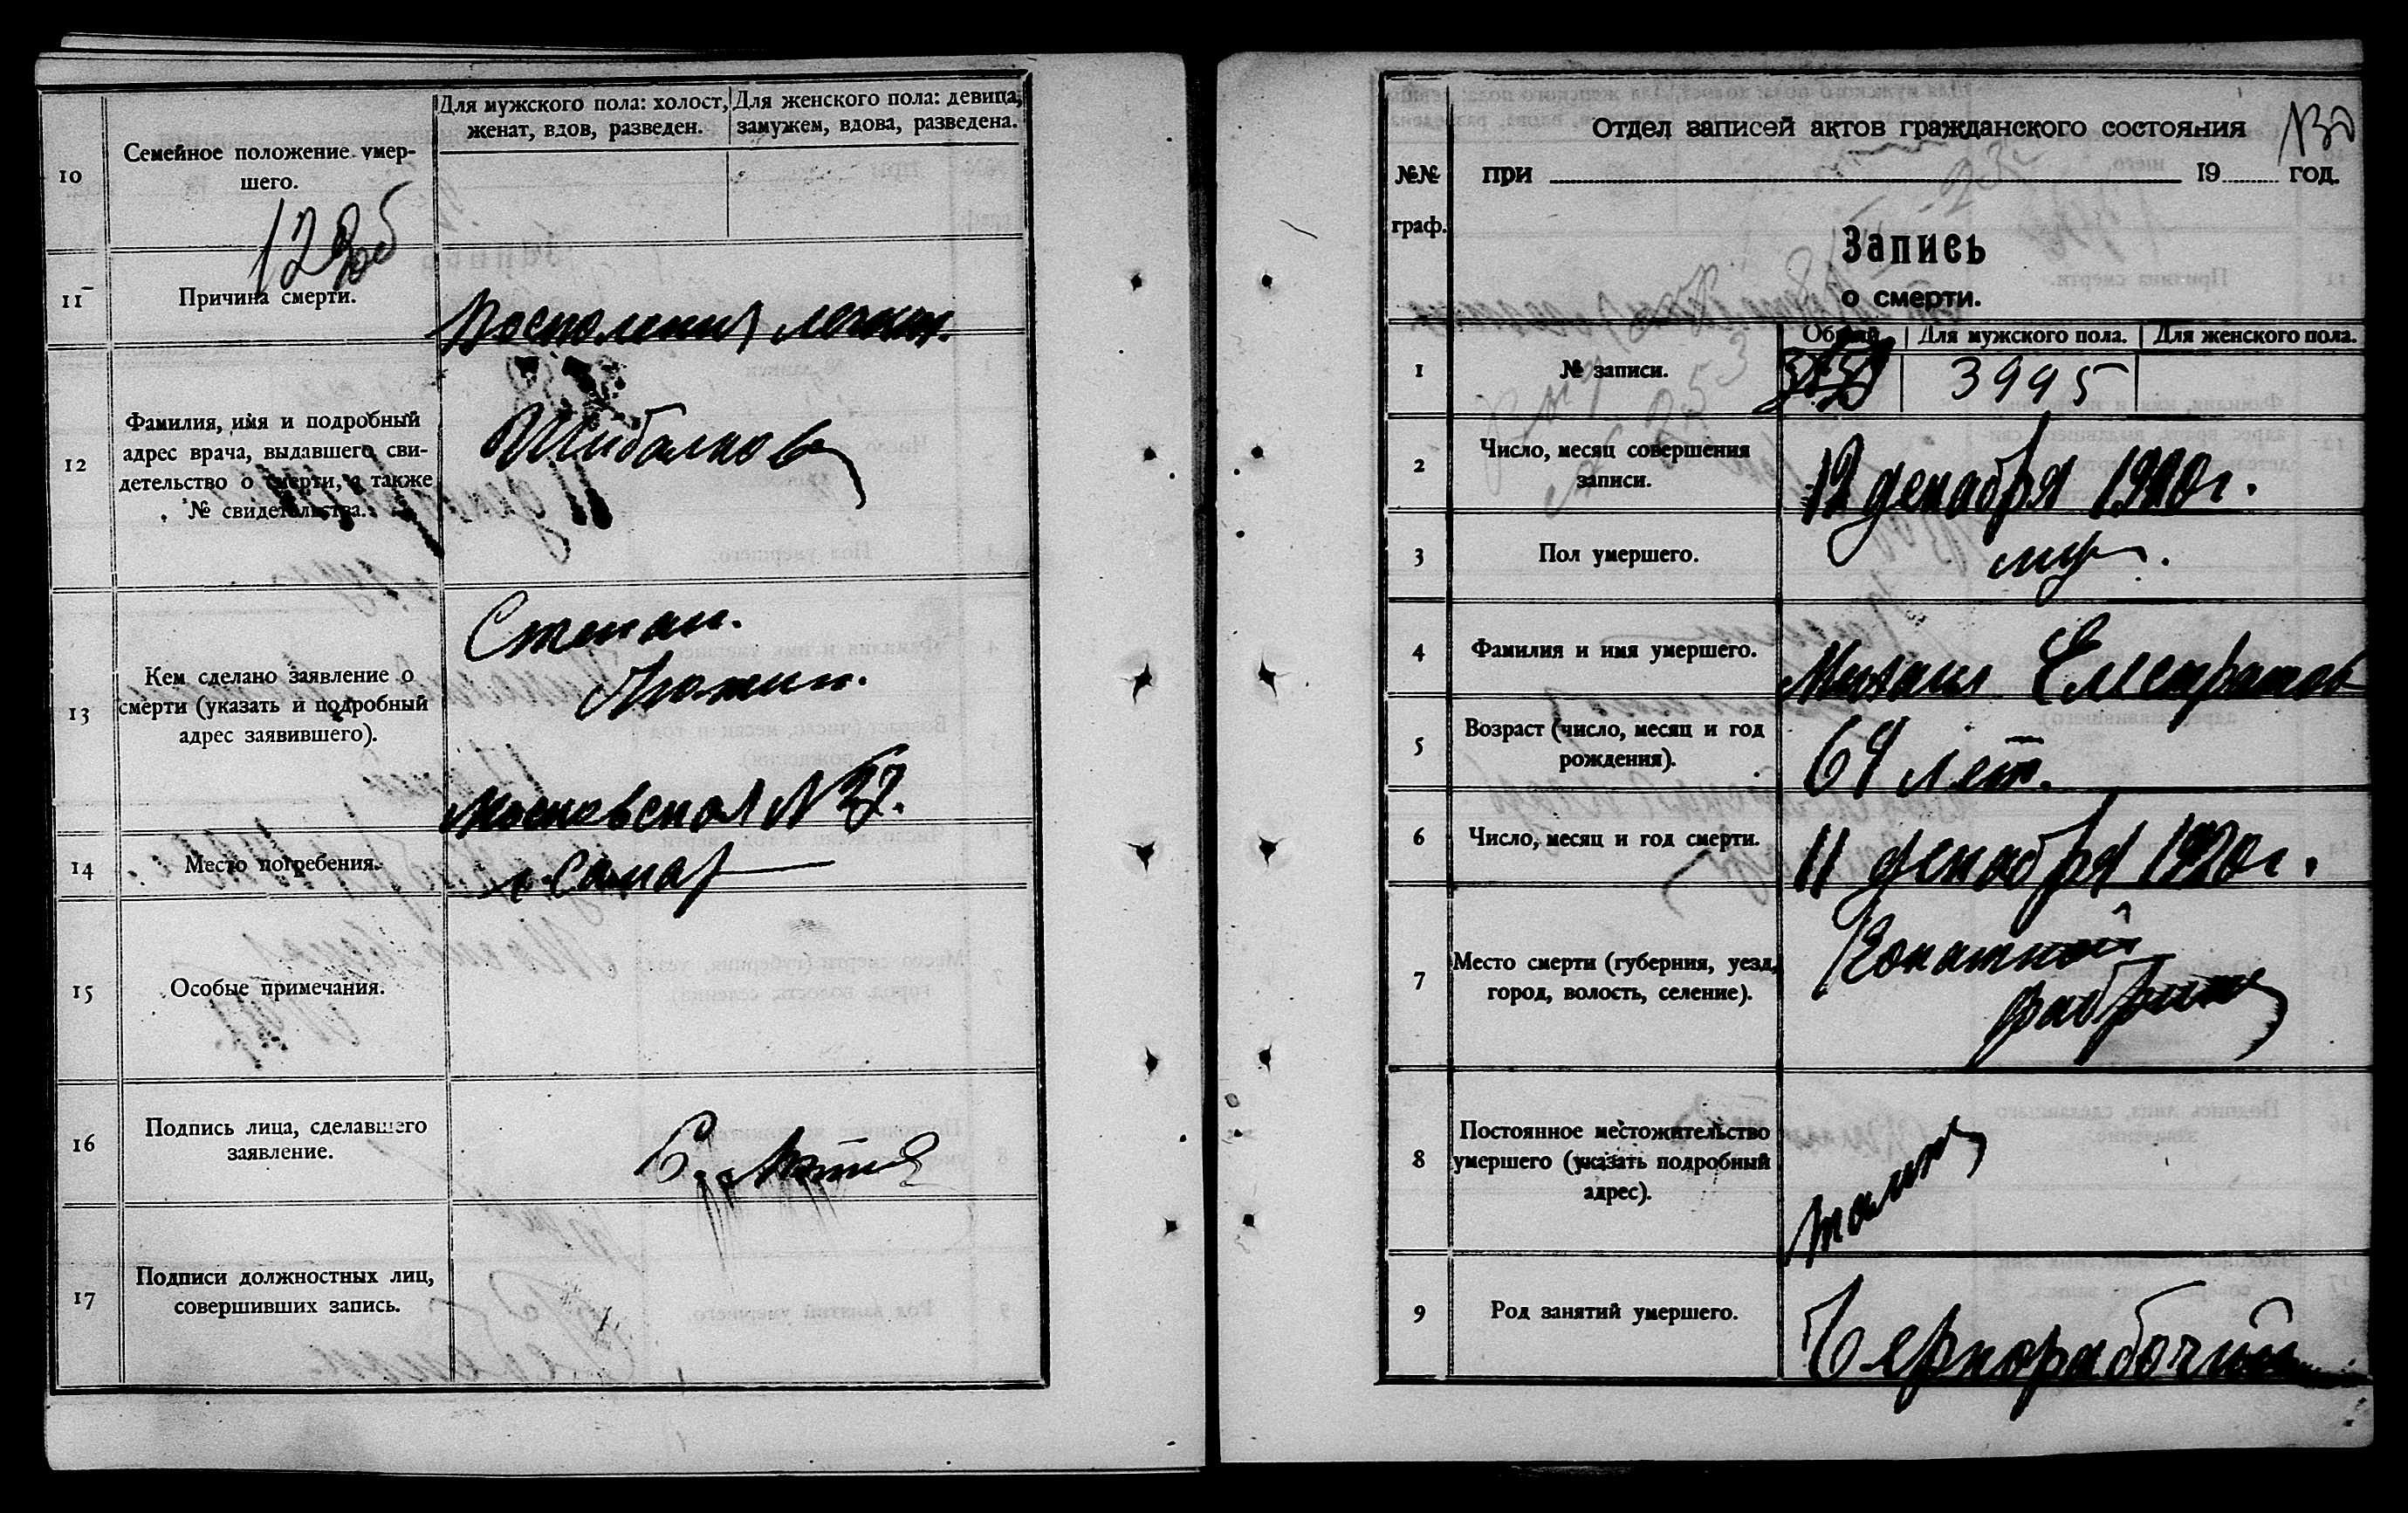 10
Семейное положение умер-
шего.
Для мужского пола: холост,
женат, вдов, разведен.
Для женского пола: девица,
замужем, вдова, разведена.
11
Причина смерти.
Воспаления легких.
12
Фамилия, имя и подробный
адрес врача, выдавшего сви-
детельство о смерти, а также
№ свидетельства.
13
Кем сделано заявление о
смерти (указать и подробный
адрес заявившего).
Степан.
Московская N 37.
14
Место погребения.
г. Самар
15
Особые примечания.
16
Подпись лица, сделавшего
заявление.
17
Подписи должностных лиц,
совершивших запись.
№№
граф.
Отдел записей актов гражданского состояния
при 19 год.
Запись
о смерти.
Общий
Для мужского пола.
Для женского пола.
1
№ записи.
3995
2
Число, месяц совершения
записи.
12 декабря 1920 г.
3
Пол умершего.
муж.
4
Фамилия и имя умершего.
Михаил Елистратов
5
Возраст (число, месяц и год
рождения).
69 лет.
6
Число, месяц и год смерти.
11 декабря 1920 г.
7
Место смерти (губерния, уезд,
город, волость, селение).
Конатной
фабрике
8
Постоянное местожительство
умершего (указать подробный
адрес).
9
Род занятий умершего.
Чернорабочий